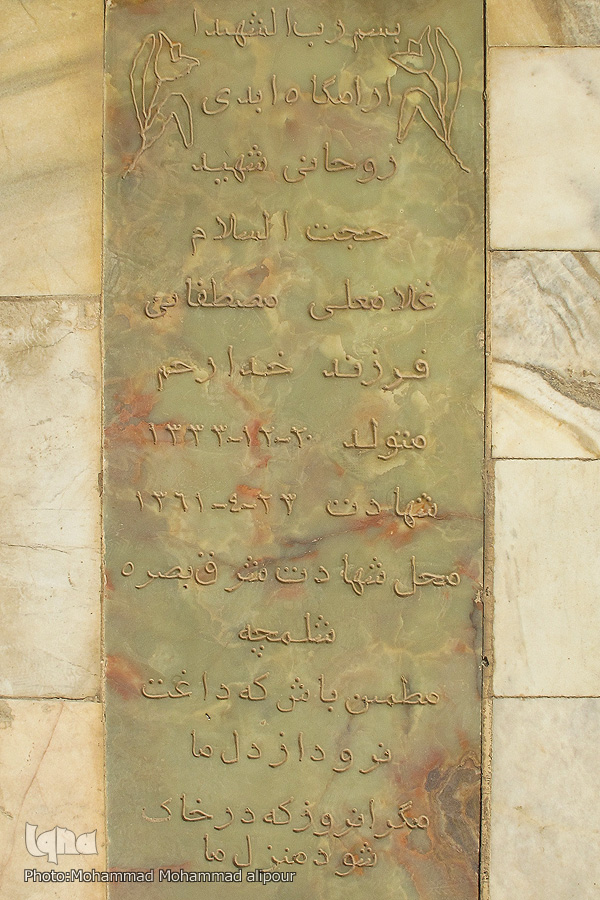 بسم رب الشهدا
ارامگاه ابدی
روحانی شهید
حجت السلام
غلامعلی مصطفایی
فرزند خدارحم
متولد ۲۰-۱۲-۱۳۳۳
شهادت ۲۳-۴-۱۳۶۱
محل شهادت شرق بصره
شلمچه
مطمئن باش که داغت
نرود از دل ما
مگر انروز که در خاک
شود منزل ما
iqna
Photo:Mohammad Mohammad alipour